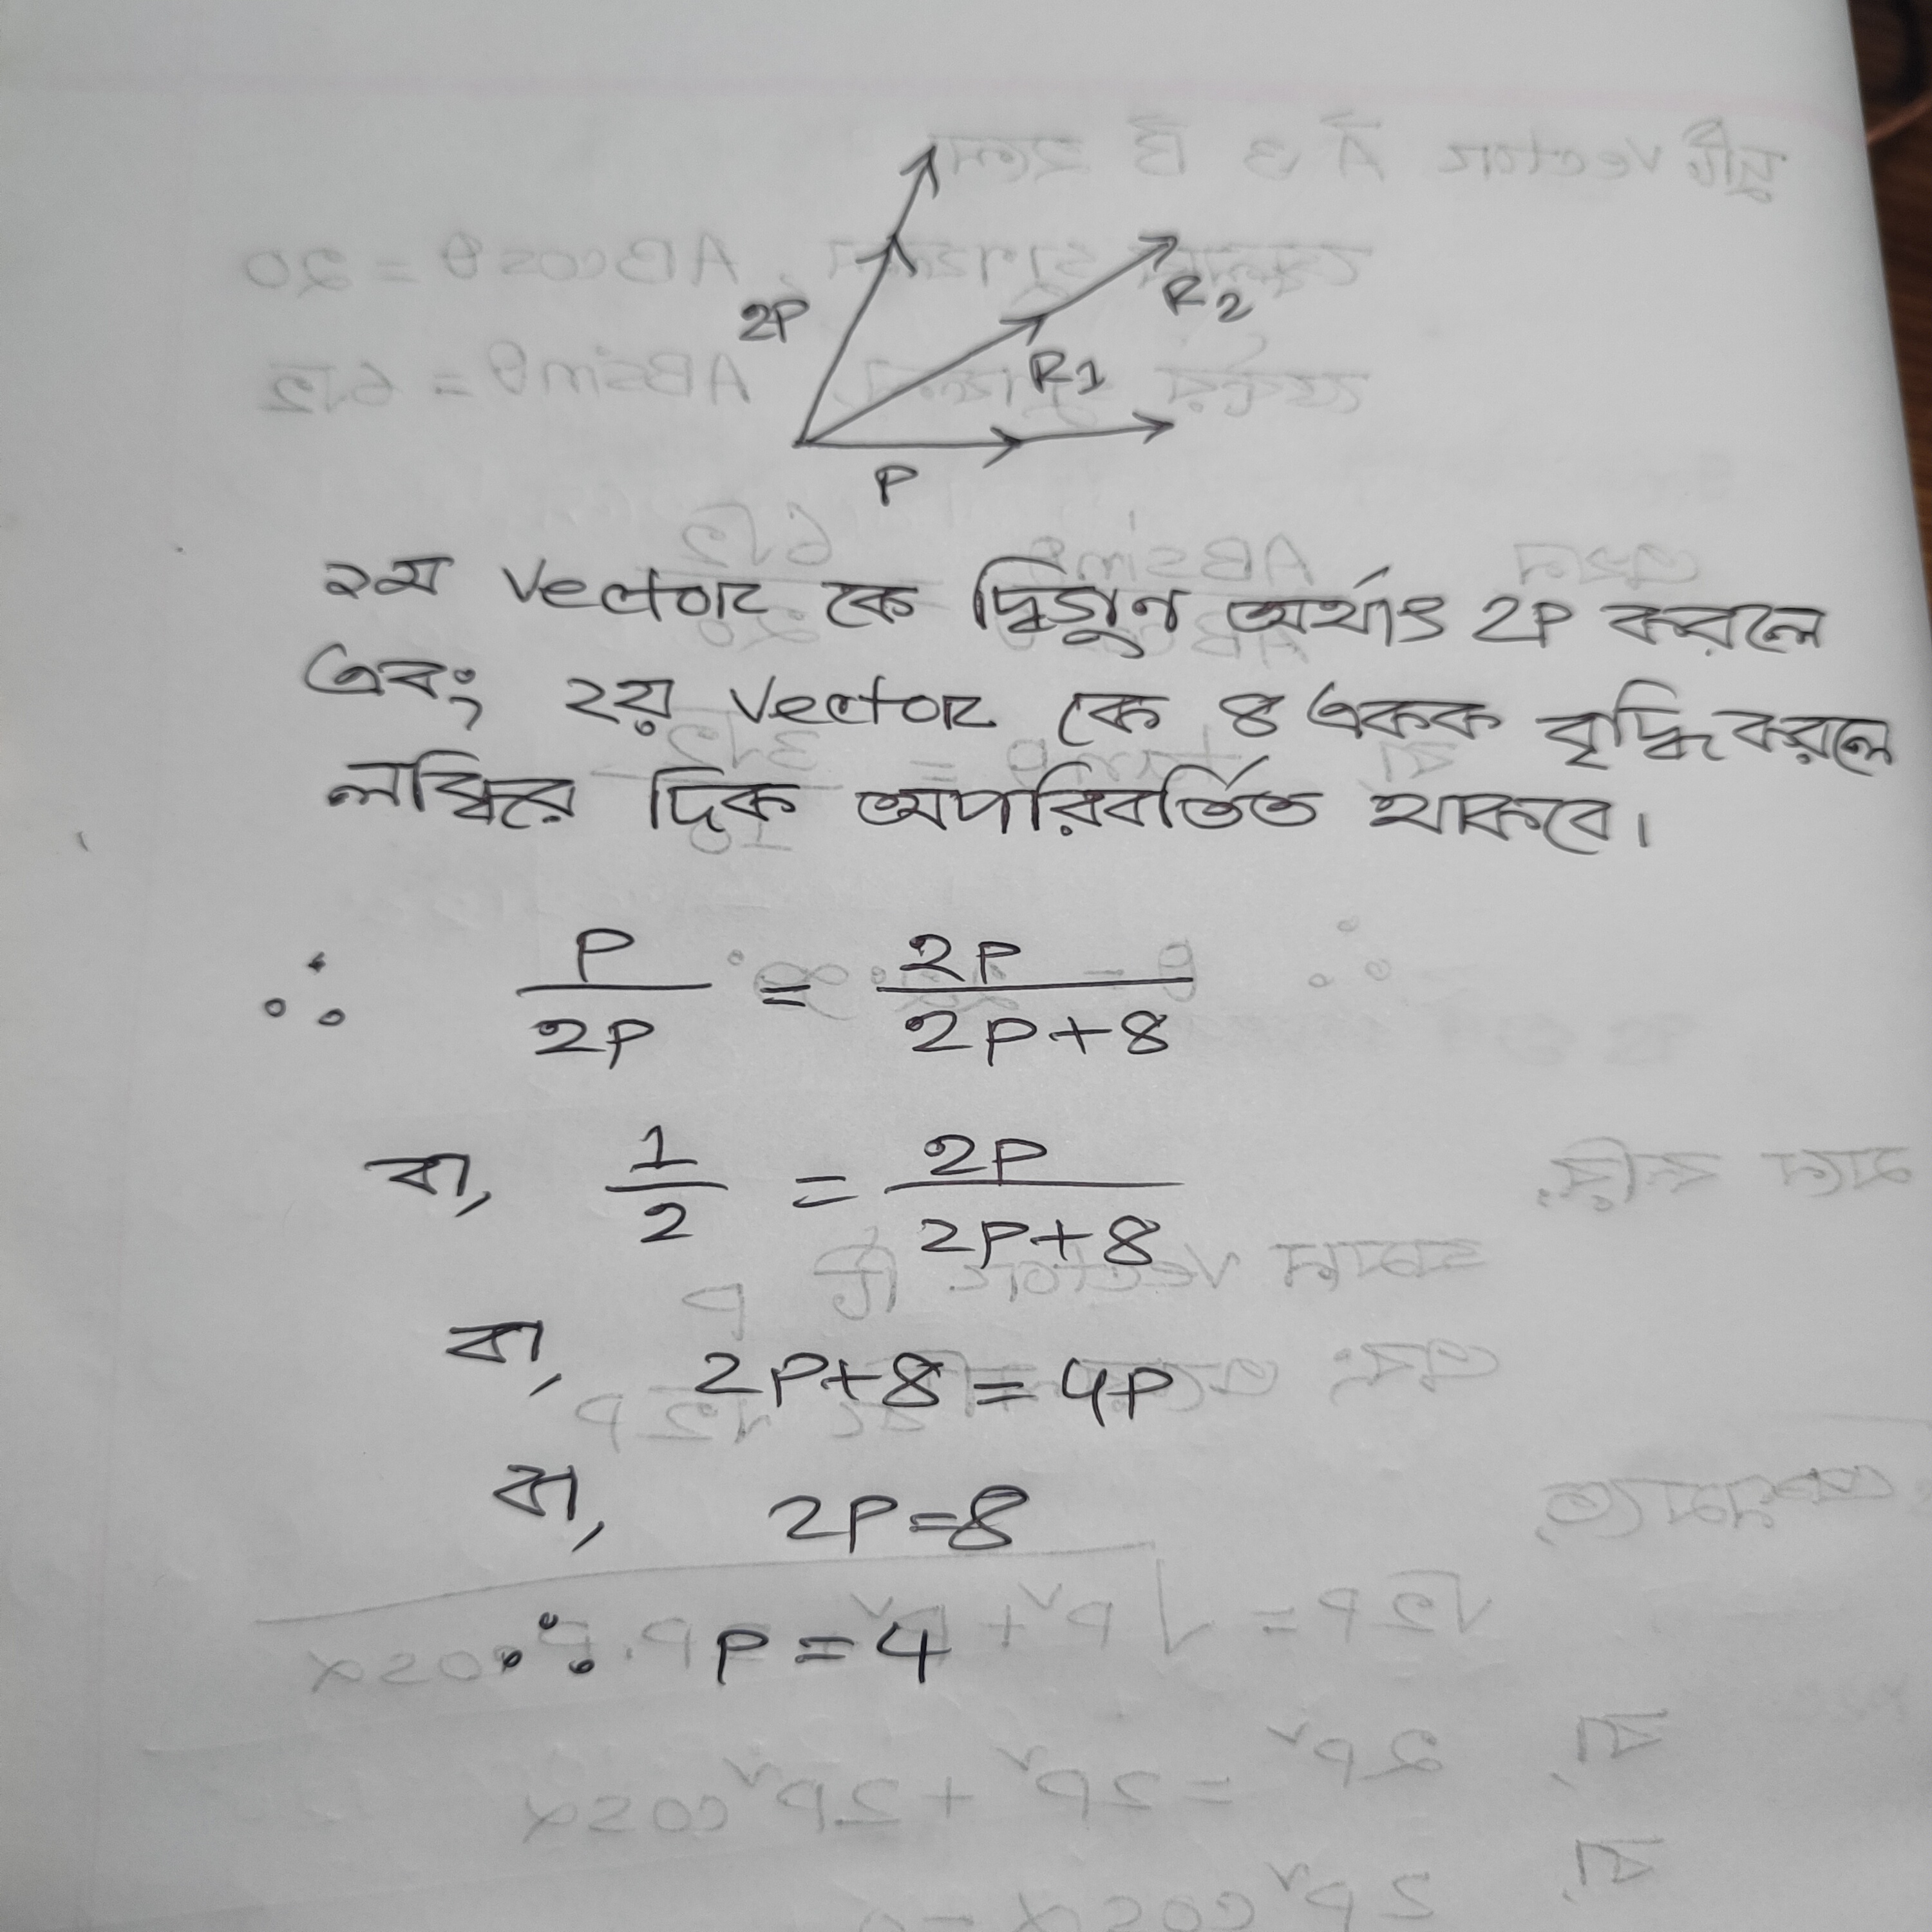 2P
R2
R1
P
১ম Vector কে দ্বিগুন অর্থাৎ 2P করলে
এবং ২য় Vector কে ৪ একক বৃদ্ধি করলে
লব্ধির দিক অপরিবর্তিত থাকবে।
∴ P/2P = 2P/2P+8
বা, 1/2 = 2P/2P+8
বা, 2P+8 = 4P
বা, 2P=8
∴ P = 4